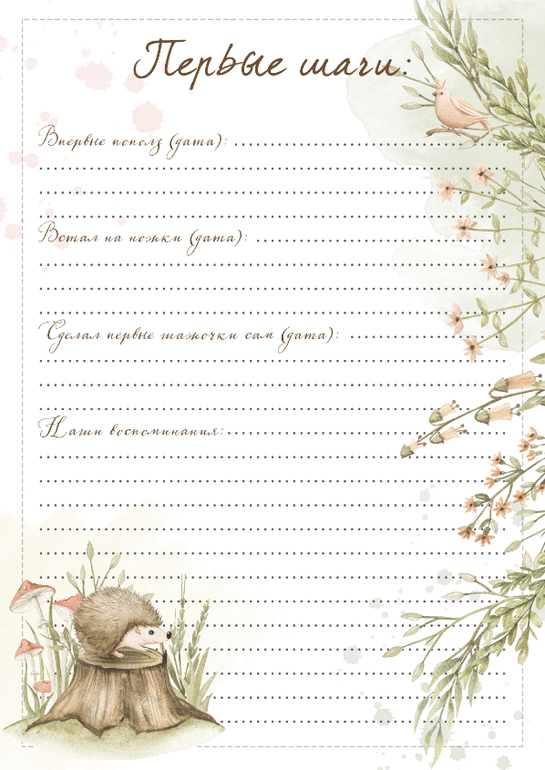 Первые шаги:
Впервые пополз (дата):
Встал на ножки (дата):
Сделал первые шажочки сам (дата):
Наши воспоминания: